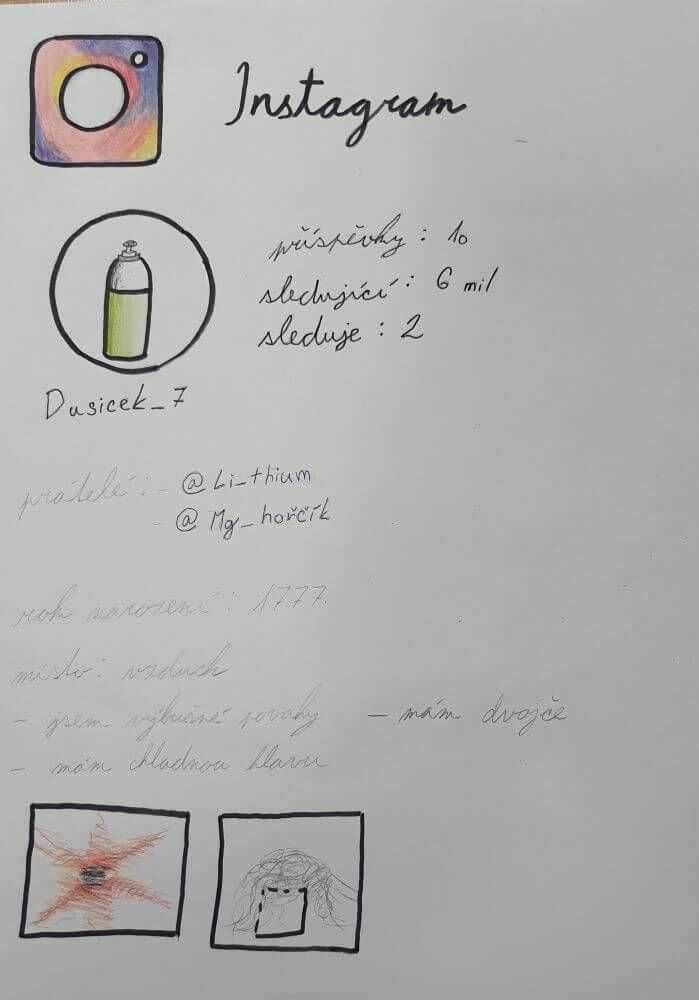 Instagram
příspěvky: 10
sledující: 6 mil
sleduje: 2
Dusicek_7
prátelé: - @Li_thium
- @Mg_hořčík
rok narození: 1777.
místo: vzduch
- jsem výbušné povahy - mám dvojče
- mám chladnou hlavu